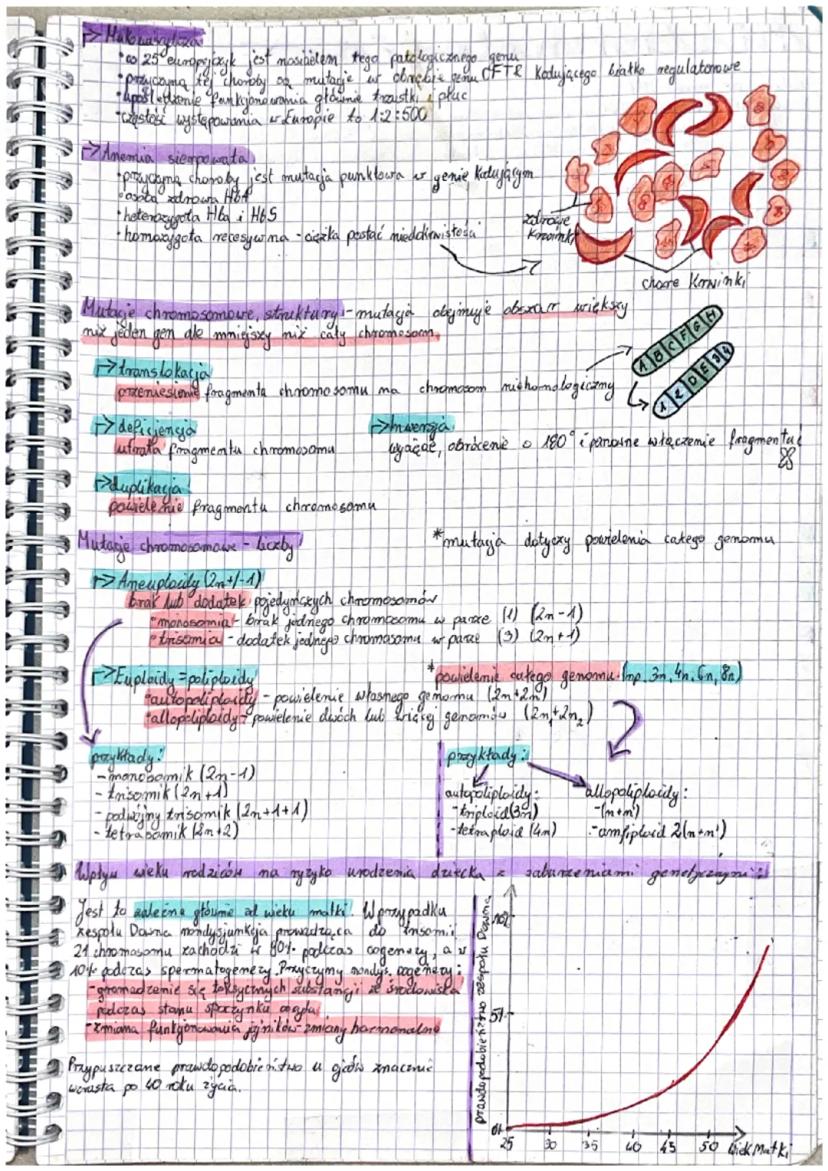 Mukowiscydoza
• co 25 europejczyk jest nosicielem tego patologicznego genu
• przyczyną tej choroby są mutacje w obrębie genu CFTR kodującego białko regulatorowe
• upośledzenie funkcjonowania głównie trzustki i płuc
• częstość występowania w Europie to 1:2:500
Anemia sierpowata
• przyczyną choroby jest mutacja punktowa w genie kodującym
• osoba zdrowa HbA
• heterozygota HbA i HbS
• homozygota recesywna - ciężka postać niedokrwistości
zdrowe
krwinki
chore krwinki
Mutacje chromosomowe, struktury - mutacja obejmuje obszar większy
niż jeden gen ale mniejszy niż cały chromosom.
translokacja
przeniesienie fragmentu chromosomu na chromosom niehomologiczny
A B C F G H
1 2 D E 3 4
deficjencja
utrata fragmentu chromosomu
Inwersja
wycięcie, obrócenie o 180° i ponowne włączenie fragmentu
duplikacja
powielenie fragmentu chromosomu
Mutacje chromosomowe - liczby
*mutacja dotyczy powielenia całego genomu
Aneuploidy (2n+/-1)
brak lub dodatek pojedyńczych chromosomów
• monosomia - brak jednego chromosomu w parze (1) (2n-1)
• trisomia - dodatek jednego chromosomu w parze (3) (2n+1)
Euploidy = poliploidy
*powielenie całego genomu (np. 3n, 4n, 6n, 8n)
• autopoliploidy - powielenie własnego genomu (2n+2n)
• allopoliploidy - powielenie dwóch lub więcej genomów (2n₁+2n₂)
przykłady:
- monosomik (2n-1)
- trisomik (2n+1)
- podwójny trisomik (2n+1+1)
- tetrasomik (2n+2)
przykłady:
autopoliploidy:
- triploid (3n)
- tetraploid (4n)
allopoliploidy:
- (n+n')
- amfiploid 2(n+n')
Wpływ wieku rodziców na ryzyko urodzenia dziecka z zaburzeniami genetycznymi:
Jest to zależne głównie od wieku matki. W przypadku
zespołu Downa nondysjunkcja prowadząca do trisomi
21 chromosomu zachodzi w 90% podczas oogenezy, a w
10% podczas spermatogenezy. Przyczyny nondys. oogenezy:
- gromadzenie się toksycznych substancji ze środowiska
podczas stanu spoczynku oocytu
- zmiana funkcjonowania jajników-zmiany hormonalne
Przypuszczane prawdopodobieństwo u ojców znacznie
wzrasta po 40 roku życia.
prawdopodobieństwo zespołu Downa
10%
5%
0%
25 30 35 40 45 50 wiek Matki